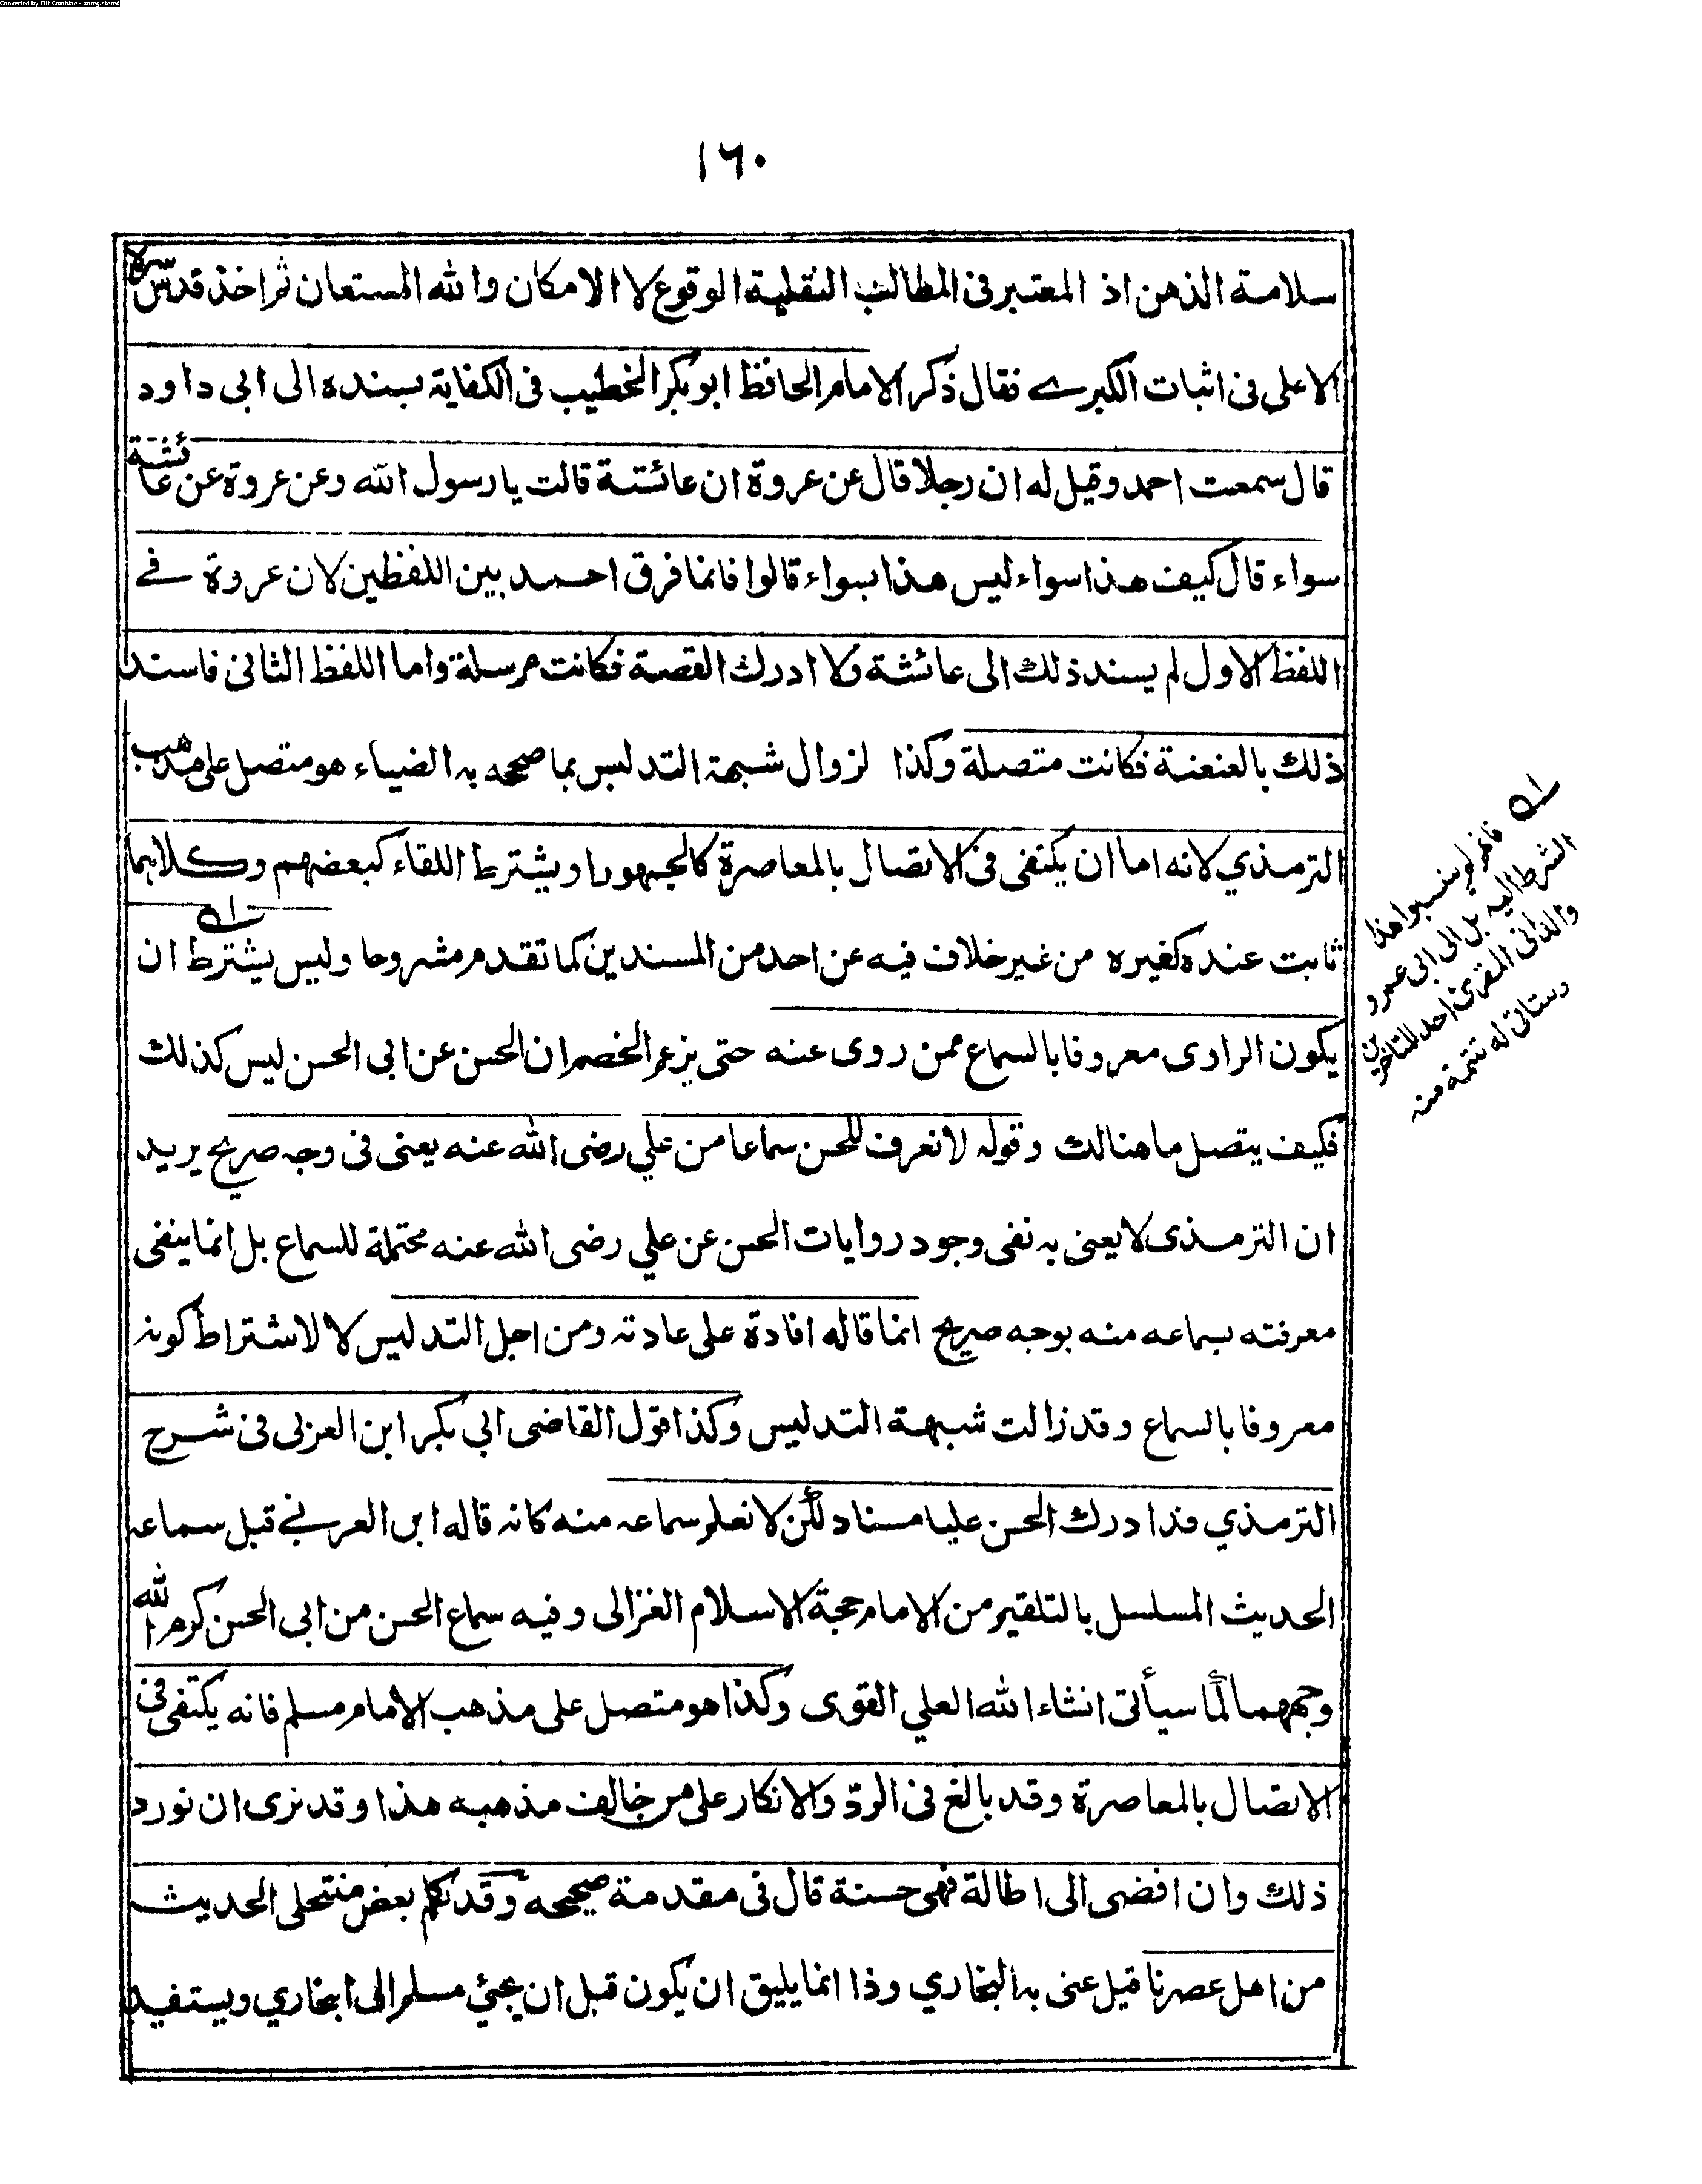 Converted by Tiff Combine - unregistered
١٦٠
سلامة الذهن اذ المعتبر فى المطالب النقلية الوقوع لا الامكان والله المستعان ثم اخذ قدس سره
الاعلى فى اثبات الكبرے فقال ذكر الامام الحافظ ابو بكر الخطيب فى الكفاية بسنده الى ابى داود
قال سمعت احمد وقيل له ان رجلا قال عن عروة ان عائشة قالت يا رسول الله وعن عروة عن عائشة
سواء قال كيف هذا سواء ليس هذا بسواء قالوا فانما فرق احمد بين اللفظين لان عروة فے
اللفظ الاول لم يسند ذلك الى عائشة ولا ادرك القصة فكانت مرسلة واما اللفظ الثانى فاسند
ذلك بالعنعنة فكانت متصلة وكذا لزوال شبهة التدليس بما صححه به الضياء هو متصل على مذهب
الترمذي لانه اما ان يكتفى فى الاتصال بالمعاصرة كالجمهور او يشترط اللقاء كبعضهم وكلاهما
ثابت عنده كغيره من غير خلاف فيه عن احد من المسندين كما تقدم مشروحا وليس يشترط ان
يكون الراوى معروفا بالسماع ممن روى عنه حتى يزعم الخصم ان الحسن عن ابى الحسن ليس كذلك
فكيف يتصل ما هنالك وقوله لا نعرف للحسن سماعا من علي رضى الله عنه يعنى فى وجه صريح يريد
ان الترمذى لا يعنى به نفى وجود روايات الحسن عن علي رضى الله عنه محتملة للسماع بل انما ينفى
معرفته بسماعه منه بوجه صريح انما قاله افادة على عادته ومن اجل التدليس لا لاشتراط كونه
معروفا بالسماع وقد زالت شبهة التدليس وكذا قول القاضى ابي بكر ابن العربى فى شرح
الترمذي فذا درك الحسن عليا مسنا دلكن لا نعلم سماعه منه كانه قاله ابن العربے قبل سماعه
الحديث المسلسل بالتلقيم من الامام حجة الاسلام الغزالى وفيه سماع الحسن من ابى الحسن كرم الله
وجههما لما سيأتى انشاء الله العلي القوى وكذا هو متصل على مذهب الامام مسلم فانه يكتفى فى
الاتصال بالمعاصرة وقد بالغ فى الردّ والانكار على من خالف مذهبه هذا وقد نرى ان نورد
ذلك وان افضى الى اطالة فهى حسنة قال فى مقدمة صحيحه وقد تكلم بعض منتحلى الحديث
من اهل عصرنا قيل عنى به البخاري وذا انما يليق ان يكون قبل ان يجئ مسلم الى البخاري ويستفيد
فانهم لم ينسبوا هذا
الشرط اليه بل الى ابى عمرو
والدانى المقرئ احد المتاخرين
وستاتى له تتمة منه